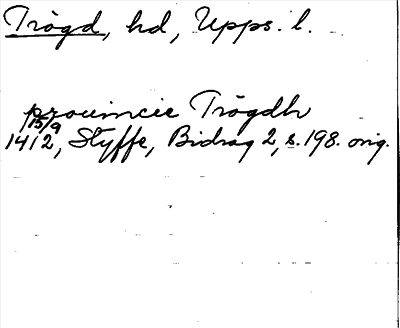 Trögd, hd, Upps. l.
prouincie Trögdh
15/9
1412, Styffe, Bidrag 2, s. 198. orig.